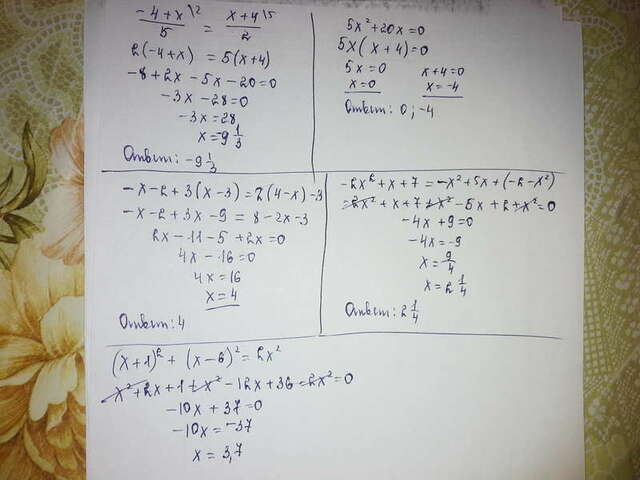 (-4+x)/5 \2 = (x+4)/2 \5
2(-4+x) = 5(x+4)
-8+2x-5x-20=0
-3x-28=0
-3x=28
x=-9 1/3
Ответ: -9 1/3
5x²+20x=0
5x(x+4)=0
5x=0 x+4=0
x=0 x=-4
Ответ: 0; -4
-x-2+3(x-3)=2(4-x)-3
-x-2+3x-9=8-2x-3
2x-11-5+2x=0
4x-16=0
4x=16
x=4
Ответ: 4
-2x²+x+7=-x²+5x+(-2-x²)
-2x²+x+7+x²-5x+2+x²=0
-4x+9=0
-4x=-9
x=9/4
x=2 1/4
Ответ: 2 1/4
(x+1)²+(x-6)²=2x²
x²+2x+1+x²-12x+36-2x²=0
-10x+37=0
-10x=-37
x=3,7